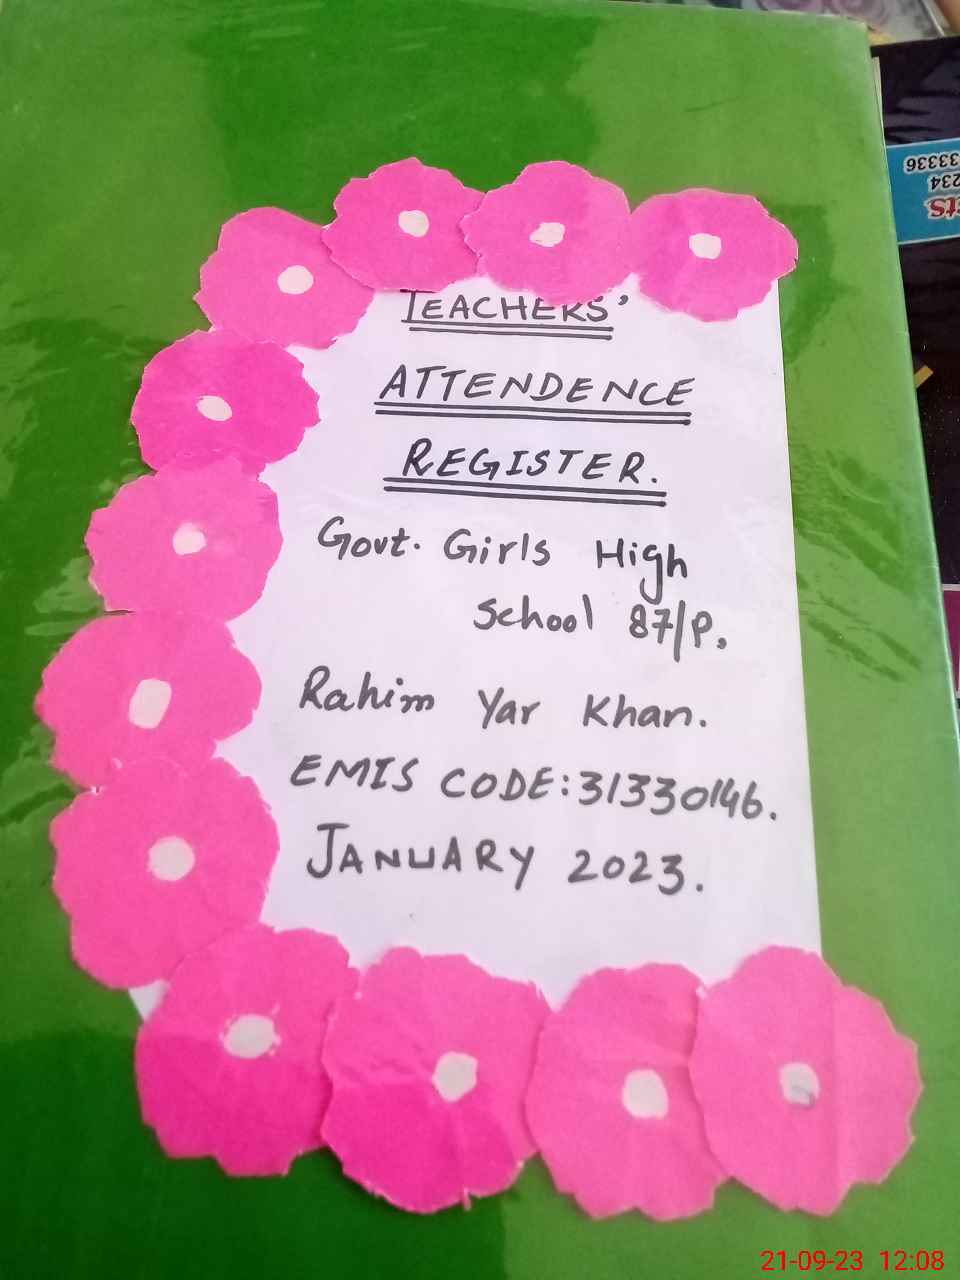 TEACHERS'
ATTENDENCE
REGISTER.
Govt. Girls High
School 87/P.
Rahim Yar Khan.
EMIS CODE:31330146.
JANUARY 2023.
33336
234
21-09-23 12:08